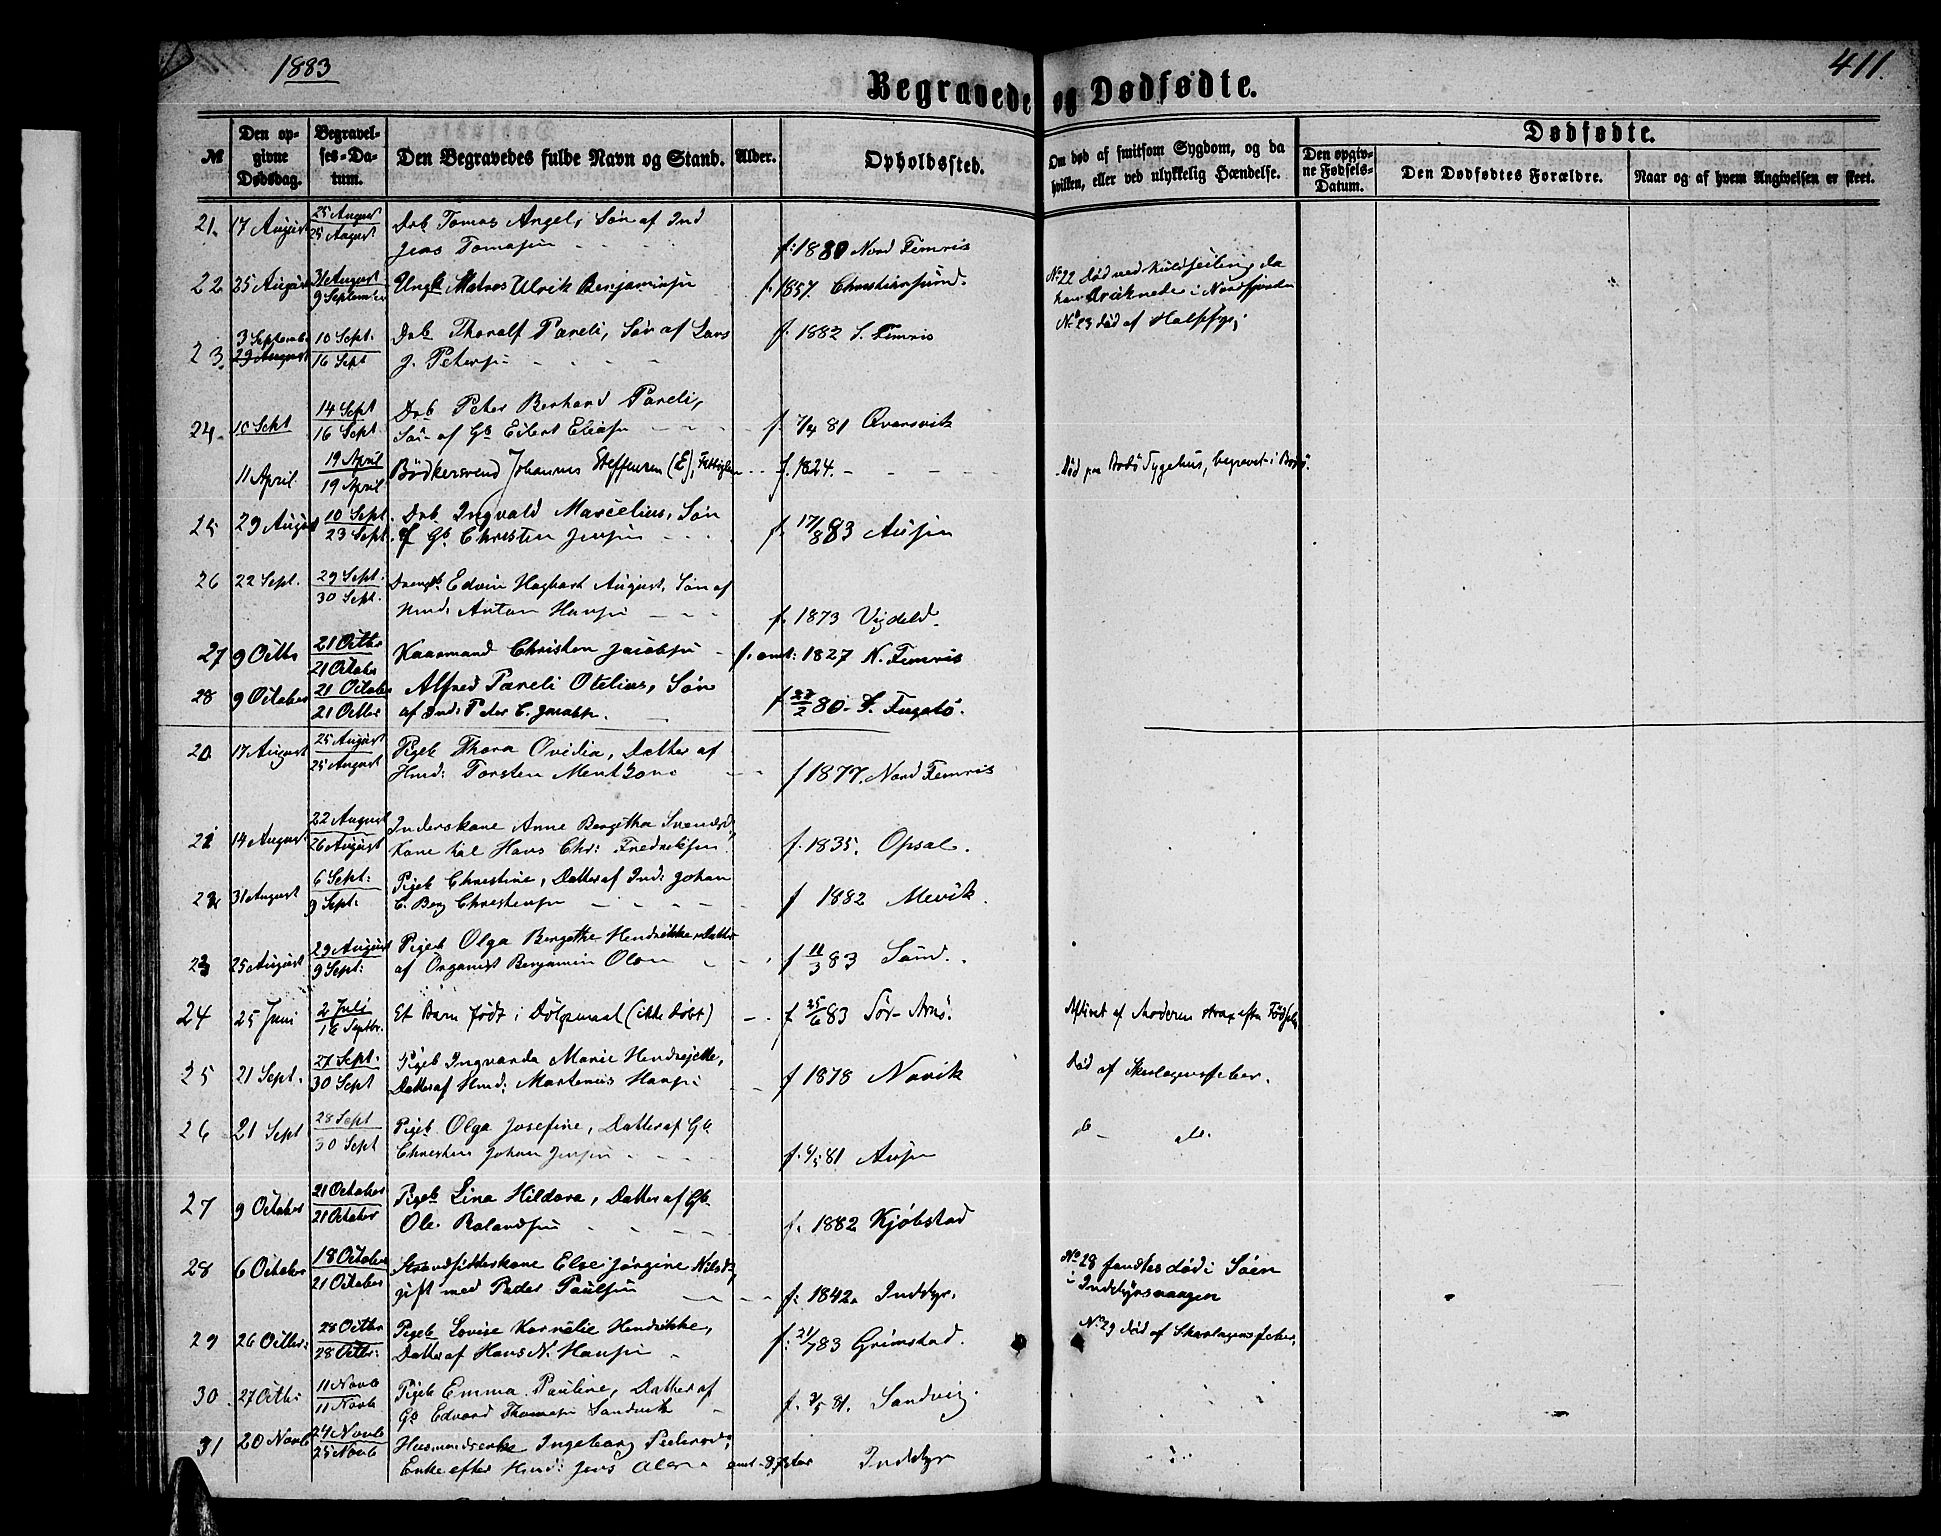 1883
411.
Begravede og Dødfødte.
№
Den opgivne Dødsdag.
Begravelses-Datum.
Den Begravedes fulde Navn og Stand.
Alder.
Opholdssted.
Om død af smitsom Sygdom, og da hvilken, eller ved ulykkelig Hændelse.
Dødfødte.
Den opgivne Fødsels-Datum.
Den Dødfødtes Forældre.
Naar og af hvem Angivelsen er skeet.
21. 17 August 25 August Drb Tomas Angel, Søn af Ind
25 August Jens Tomasen f: 1880 Nord Femris
22 25 August 31 August Ungk Matros Ulrik Benjaminsen f. 1857. Christiansund. No 22 død ved Kuldseiling, da
9 September han druknede i Nordfjorden
3 Septembr 10 Sept: Drb Thoralf Pareli, Søn af Lars f. 1882 S. Femris No 23 død af Halssyge
23. 29 August 16 Sept J. Petersen
24. 10 Sept 14 Sept Drb Peter Berhard Pareli,
16 Sept. Søn af Gb Eilert Eliasen f. 7/4 81 Qvarsvik
11 April 19 April Bødkersvend Johannes Steffensen (E), f. 1824. Død paa Bodø Sygehus, begravet i Bodø.
19 April
25 29 August 10 Sept. Drb Ingvald Marcelius, Søn
23 Sept. af Gb. Christen Jensen f. 17/8 83 Ausen
26 22 Sept. 29 Sept: Drengb. Edvin Hagbart August, Søn af
30 Sept. Hmd: Anton Hansen f. 1873 Vigdeld.
27 9 Octbr 21 Octbr Kaarmand Christen Jacobsen f. omt: 1827 N. Femris
21 October
28 9 October 21 October Alfred Pareli Otelius, Søn
21 Octbr af Ind: Peter C. Jacobs. f 27/2 80 S. Fugelø.
20 17 August 25 August Pigeb Thora Ovidia, Datter af
25 August Hmd: Torsten Mentzone f 1877. Nord Femris
21 14 August 22 August Inderskone Anne Bergitha Svendsd,
26 August Kone til Hans Chr: Fredriksen f. 1835. Opsal.
22 31 August 6 Sept: Pigeb Christine, Datter af Ind: Johan
9 Sept: C. Berg Christensen f 1882 Mevik.
23 25 August 29 August Pigeb Olga Bergethe Hendrikke, Datter
9 Sept: af Organist Benjamin Olsen f 11/3 83 Sund.
24 25 Juni 2 Juli Et Barn født i Dølgsmaal (ikke døbt) f 25/6 83 Sør-Arnø. Aflivet af Moderen strax efter Fødselen
16 Septbr.
25 21 Sept. 27 Sept: Pigeb Ingvarda Marie Hendrejette,
30 Sept Datter af Hmd: Martenus Hansen f 1878 Novik Død af Skarlagensfeber.
26 21 Sept 28 Sept Pigeb. Olga Josefine, Datter af Gb.
30 Sept Christen Johan Jensen f. 4/5 81 Ausen do do.
27 9 October 21 October Pigeb Lina Hildora, Datter af Gb.
21 October Ole Rolandsen f. 1882 Kjøbstad
28 6 October 18 October Strandsidderskone Else Jørgine Nilsd, No 28 fandtes død i Søen
21 October gift med Peder Paulsen f: 1842. Inddyr. i Inddyrsvaagen
29 26 Octbr: 28 Octbr Pigeb Lovise Kornelie Hendrikke,
28 Octbr: Datter af Hans N. Hansen f: 21/7 83 Grimstad. No 29 død af Skarlagensfeber.
30. 27 Octbr 11 Novb Pigeb Emma Pauline, Datter af
11 Novb Gb Edvard Thomasen Sandvik f. 3/5 81. Sandvig.
31 20 Novb 24 Novb Husmandsenke Ingeborg Pedersd;
25 Novb Enke efter Hmd: Jens Olsen omt. 87 Aar Inddyr